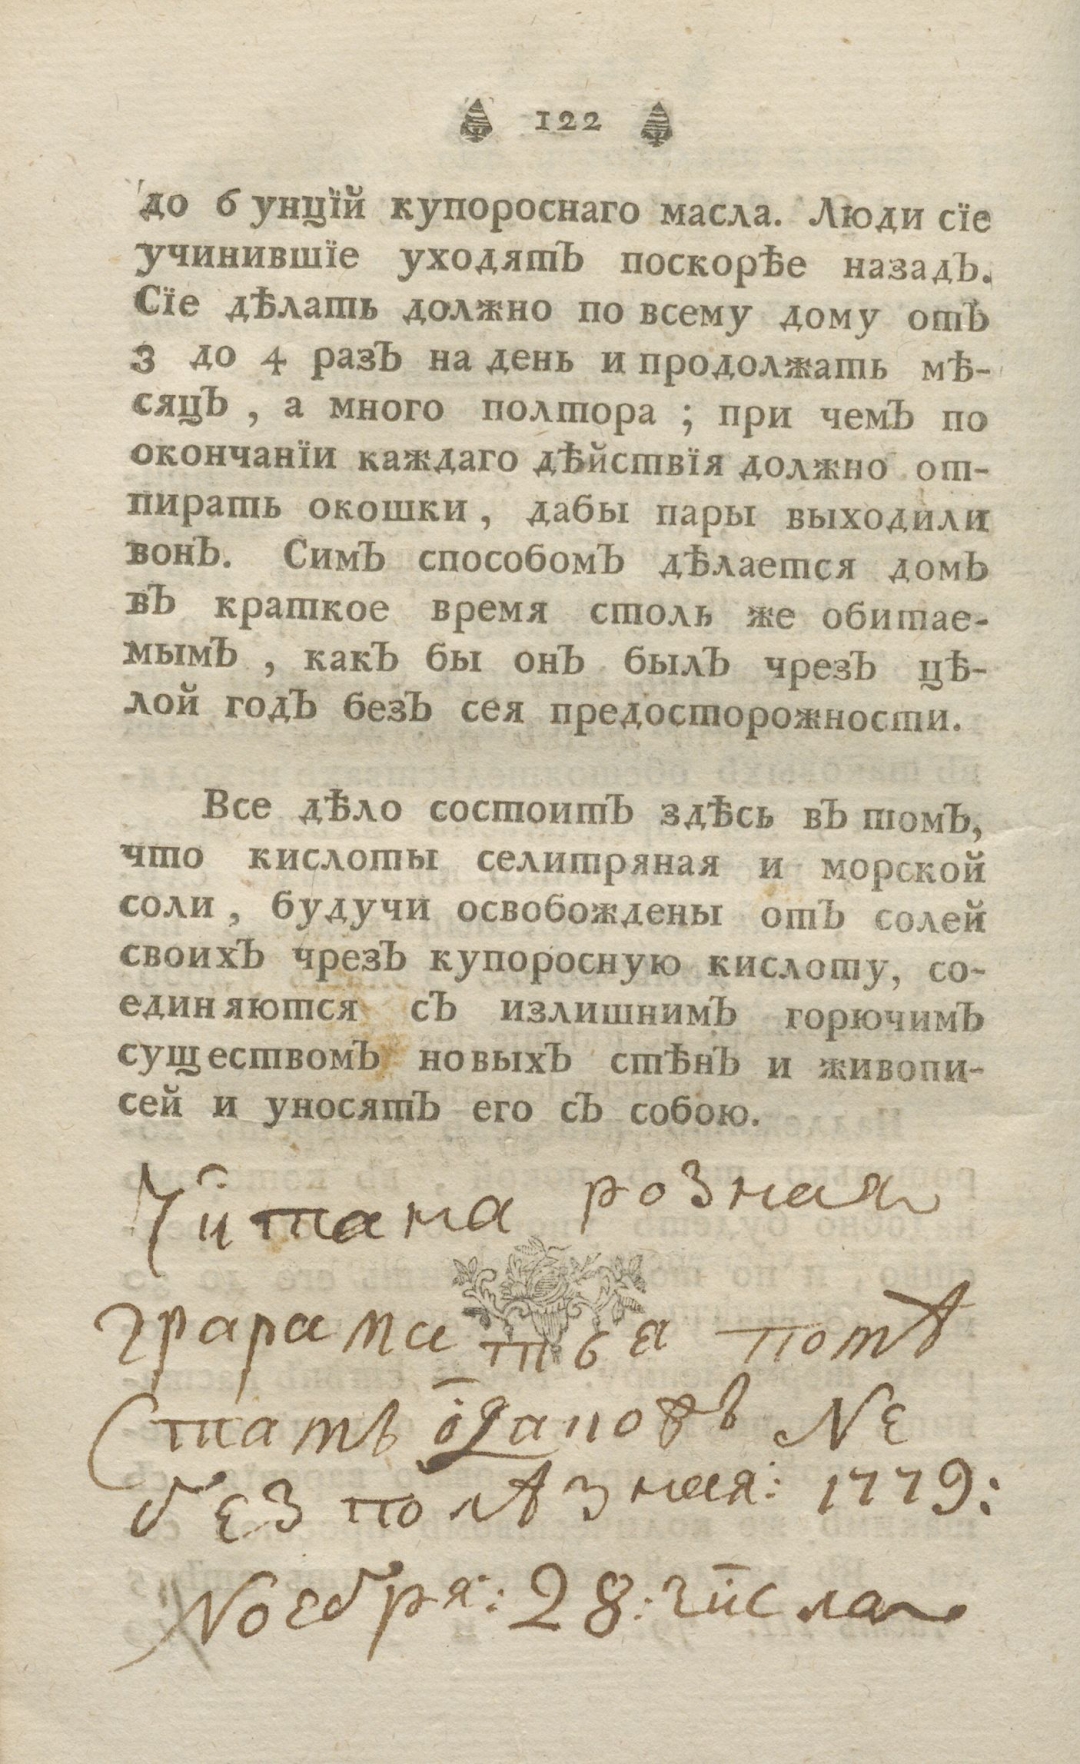 122
до 6 унцїй купороснаго масла. Люди сїе
учинившїе уходятъ поскорѣе назадъ.
Сїе дѣлать должно по всему дому отъ
3 до 4 разъ на день и продолжать мѣ-
сяцъ , а много полтора ; при чемъ по
окончанїи каждаго дѣйствїя должно от-
пирать окошки , дабы пары выходили
вонъ. Симъ способомъ дѣлается домъ
въ краткое время столь же обитае-
мымъ , какъ бы онъ былъ чрезъ цѣ-
лой годъ безъ сея предосторожности.
Все дѣло состоитъ здѣсь въ томъ,
что кислоты селитряная и морской
соли , будучи освобождены отъ солей
своихъ чрезъ купоросную кислоту, со-
единяются съ излишнимъ горючимъ
существомъ новыхъ стѣнъ и живопи-
сей и уносятъ его съ собою.
Читана розная
грарама тѣа потѣ
Стать Nе
без полѣзная: 1779:
Nоебря: 28: числа